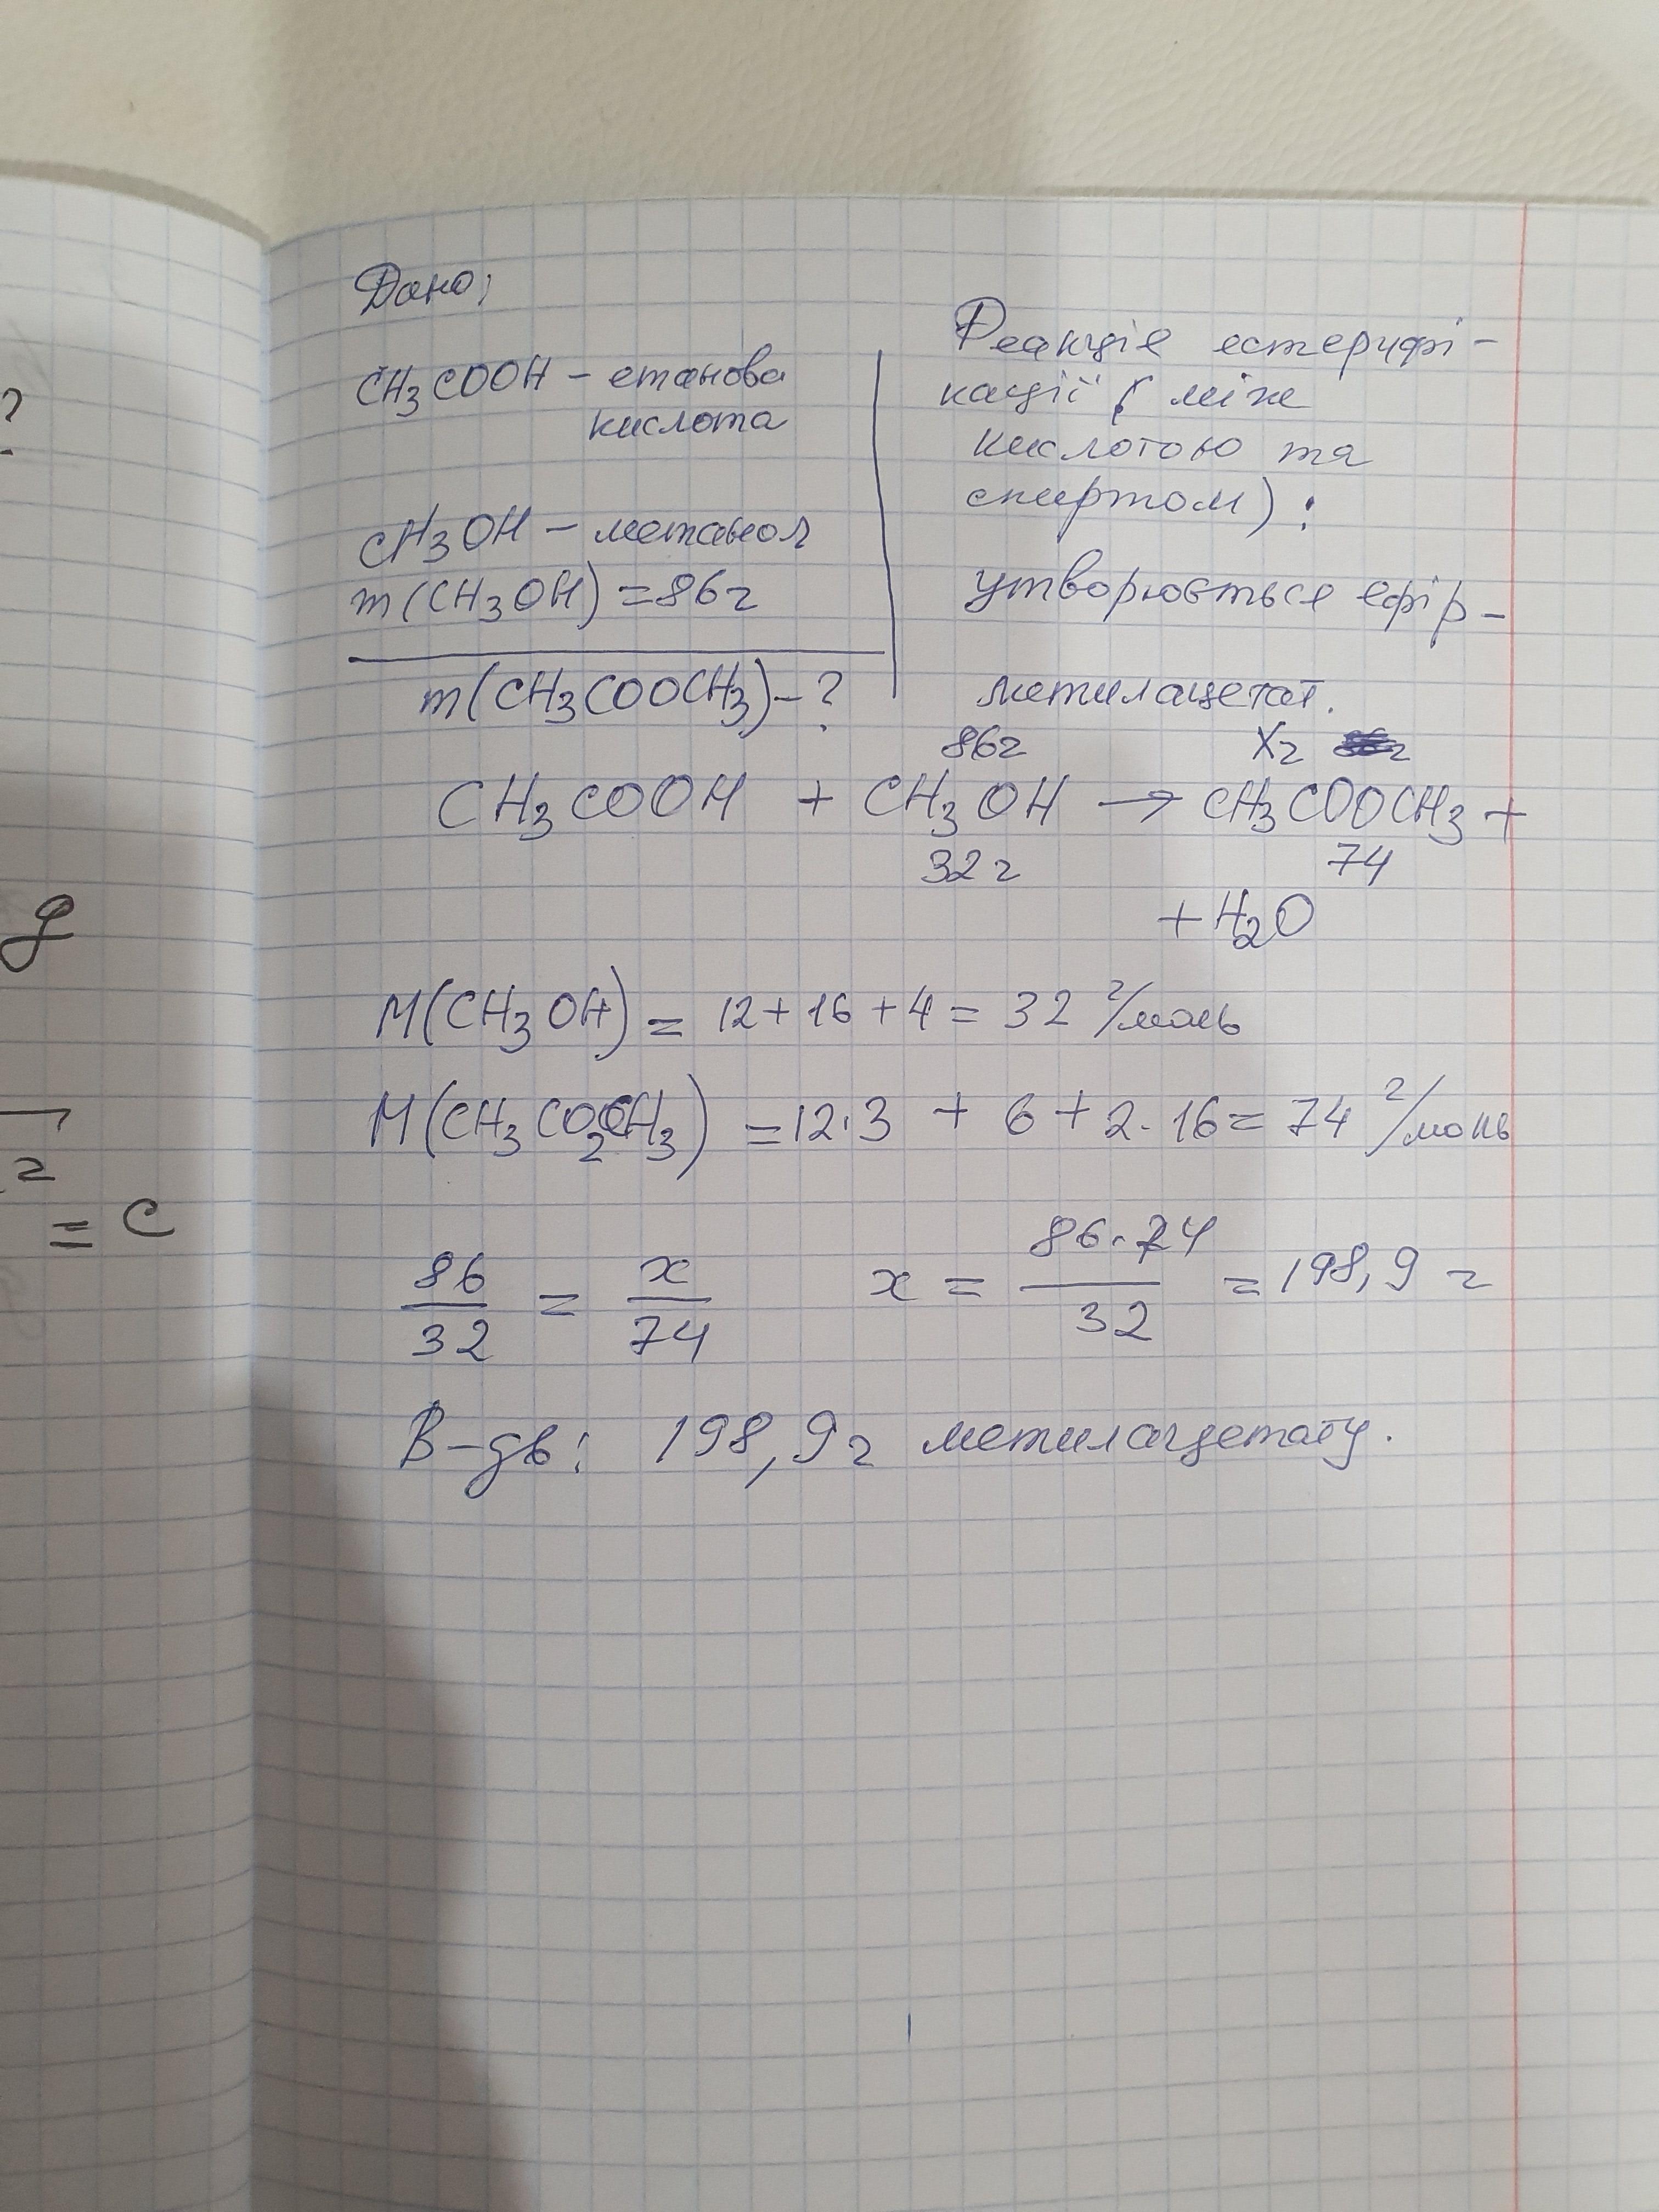 Дано:
CH3COOH – етанова
кислота
CH3OH – метанол
m(CH3OH) = 86г
m(CH3COOCH3) – ?
Реакція естерифі-
кації ( між
кислотою та
спиртом) :
утворюється ефір –
метилацетат.
86г Xг
CH3COOH + CH3OH → CH3COOCH3 +
32г 74
+ H2O
M(CH3OH) = 12 + 16 + 4 = 32 г/моль
M(CH3CO2CH3) = 12·3 + 6 + 2·16 = 74 г/моль
86/32 = x/74 x = 86·74/32 = 198,9 г
В-дь: 198,9г метилацетату.
?
g
2
= C